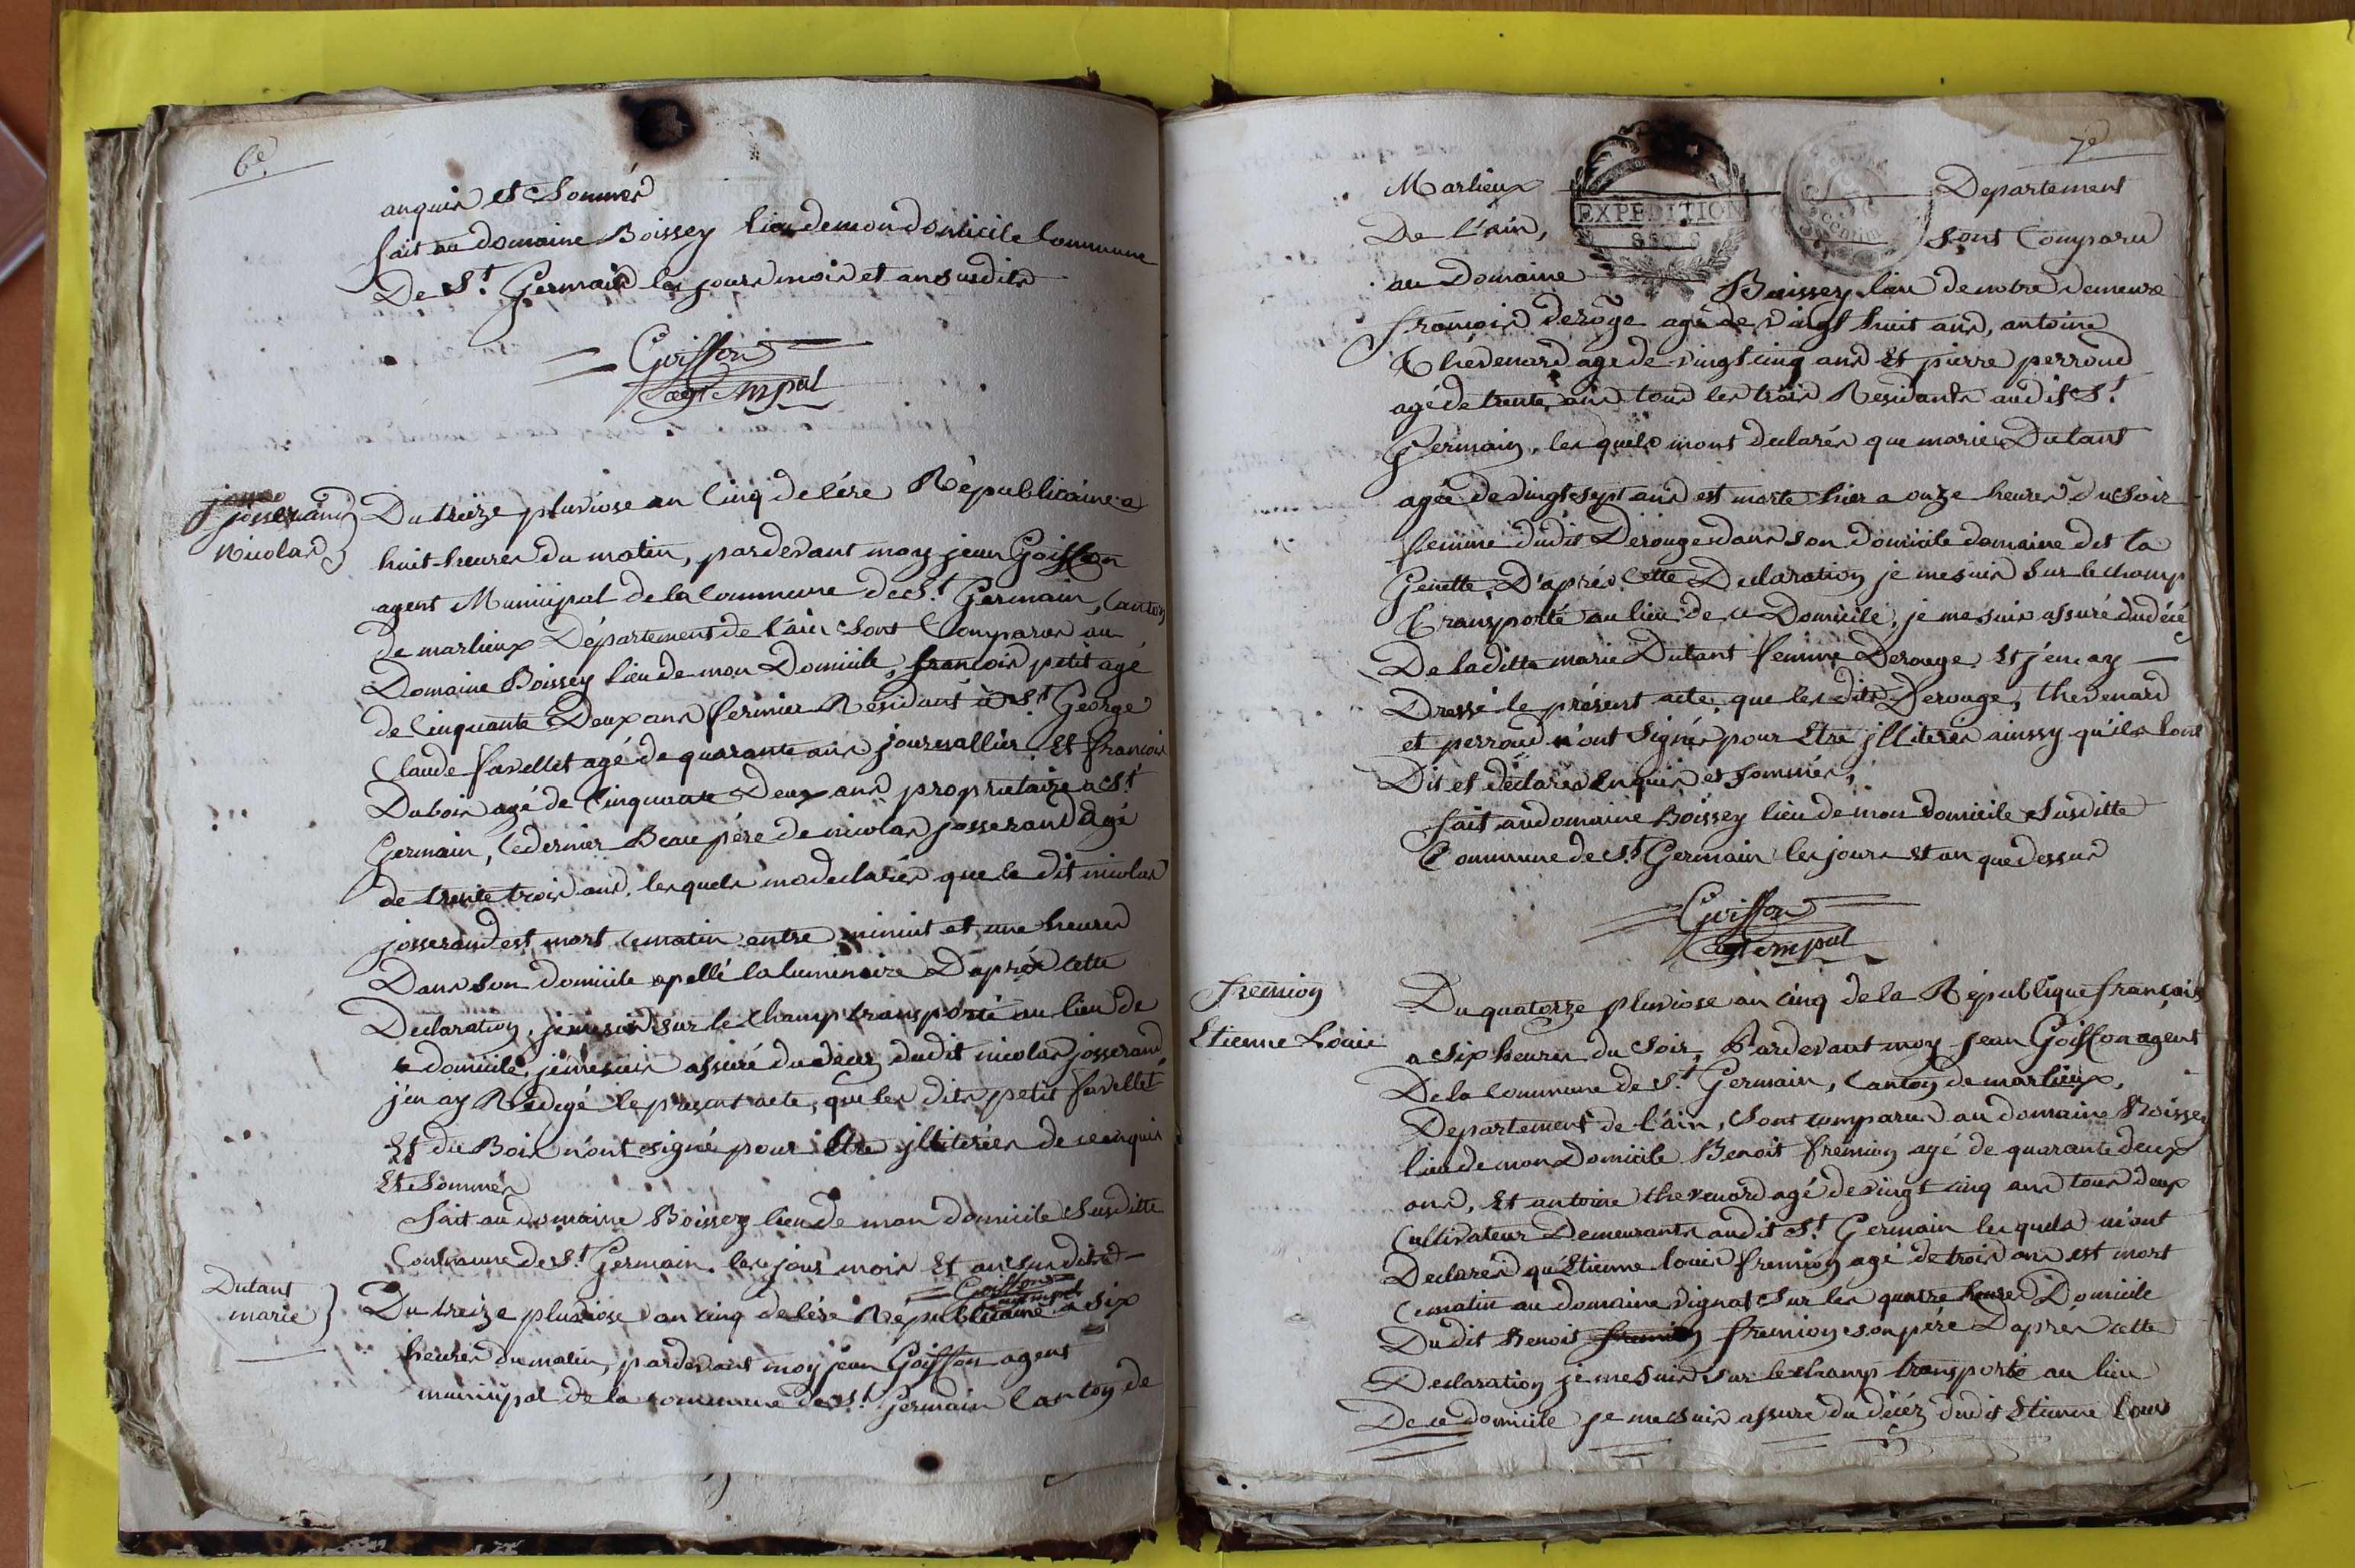 6e.
anquis et Sommés
fait au domaine Boissey lieu de mon domicile Commune
De St. Germain les jours mois et an susdits
Goiffon
agt mpal
josserand
Nicolas
Du treize pluviose an Cinq de l'ére Républicaine a
huit heures du matin, pardevant moy jean Goiffon
agent Municipal de la Commune de St. Germain, Canton
de marlieux Département de l'ain Sont Comparus au
Domaine Boissey lieu de mon Domicile, francois petit agé
de Cinquante Deux ans fermier Résidant à St. George
Claude favellet agé de quarante ans journallier Et francois
Dubois agé de Cinquante Deux ans propriétaire a St.
Germain, le dernier Beau pére de nicolas josserand Agé
de trente trois ans, lesquels mo declarés que le dit nicolas
josserand est mort ce matin entre minuit et une heures
Dans son domicile apellé la luminaire D'aprés Cette
Declaration, je me suis sur le Champ transporté au lieu de
ce domicile, je me suis assuré du décez dudit nicolas josserand
j'en ay Rédegé le present acte, que les dits petit favellet
Et du Bois n'ont signé pour Etre jlliterés de ce enquis
Et Sommés
fait au domaine Boissey lieu de mon domicile Susditte
Commune de St. Germain les jour mois Et an Susdits
Goiffon
agt mpal
Dutant
marie
Du treize pluviose an cinq de l'ére Républicaine a six
heures du matin, pardevant moy jean Goiffon agent
municipal de la commune de St. Germain Canton de
7e
Marlieux Departement
EXPEDITION
De l'ain, Sont Comparu
au Domaine Boissey lieu de notre demeure
francois deroge agé de vingt huit ans, antoine
Thévenard agé de vingt cinq ans Et pierre perroud
agé de trente ans tous les trois Residants audit St.
Germain, les quels m'ont declarés que marie Dutant
agée de vingt sept ans est morte hier a onze heures du Soir
femme dudit Derouge dans son domicile domaine dit la
Genette. D'aprés Cette Declaration je me suis Sur le champ
Transporté au lieu de ce Domicile, je me suis assuré du décé
De laditte marie Dutant femme Derouge Et j'en ay
Dressé le présent acte, que les dits Derouge, thevenard
et perroud n'ont Signés pour Etre jlliterés ainssy qu'ils l'ont
Dit et déclarés Enquis et sommés,
fait au domaine Boissey lieu de mon domicile Susditte
Commune de St. Germain les jours Et an que dessus
Goiffon
agt mpal
fremion
Etienne Louis
Du quatorze pluviose an cinq de la République francaise
a Six heures du Soir, Pardevant moy Jean Goiffon agent
De la Commune de St. Germain, Canton de marlieux,
Departement de l'ain, Sont comparus au domaine Boissey
lieu de mon Domicile Benoit fremion agé de quarante deux
ans, Et antoine thevenard agé de vingt cinq ans tous deux
Cultivateur Demeurants audit St. Germain les quels m'ont
Declarés qu'Etienne louis fremion agé de trois ans est mort
Ce matin au domaine vignat sur les quatre heures Domicile
Du dit Benoit fremion fremion son pére D'aprés cette
Declaration je me suis sur le champ transporté au lieu
De ce domicile je me suis assuré du décéz dudit Etienne louis